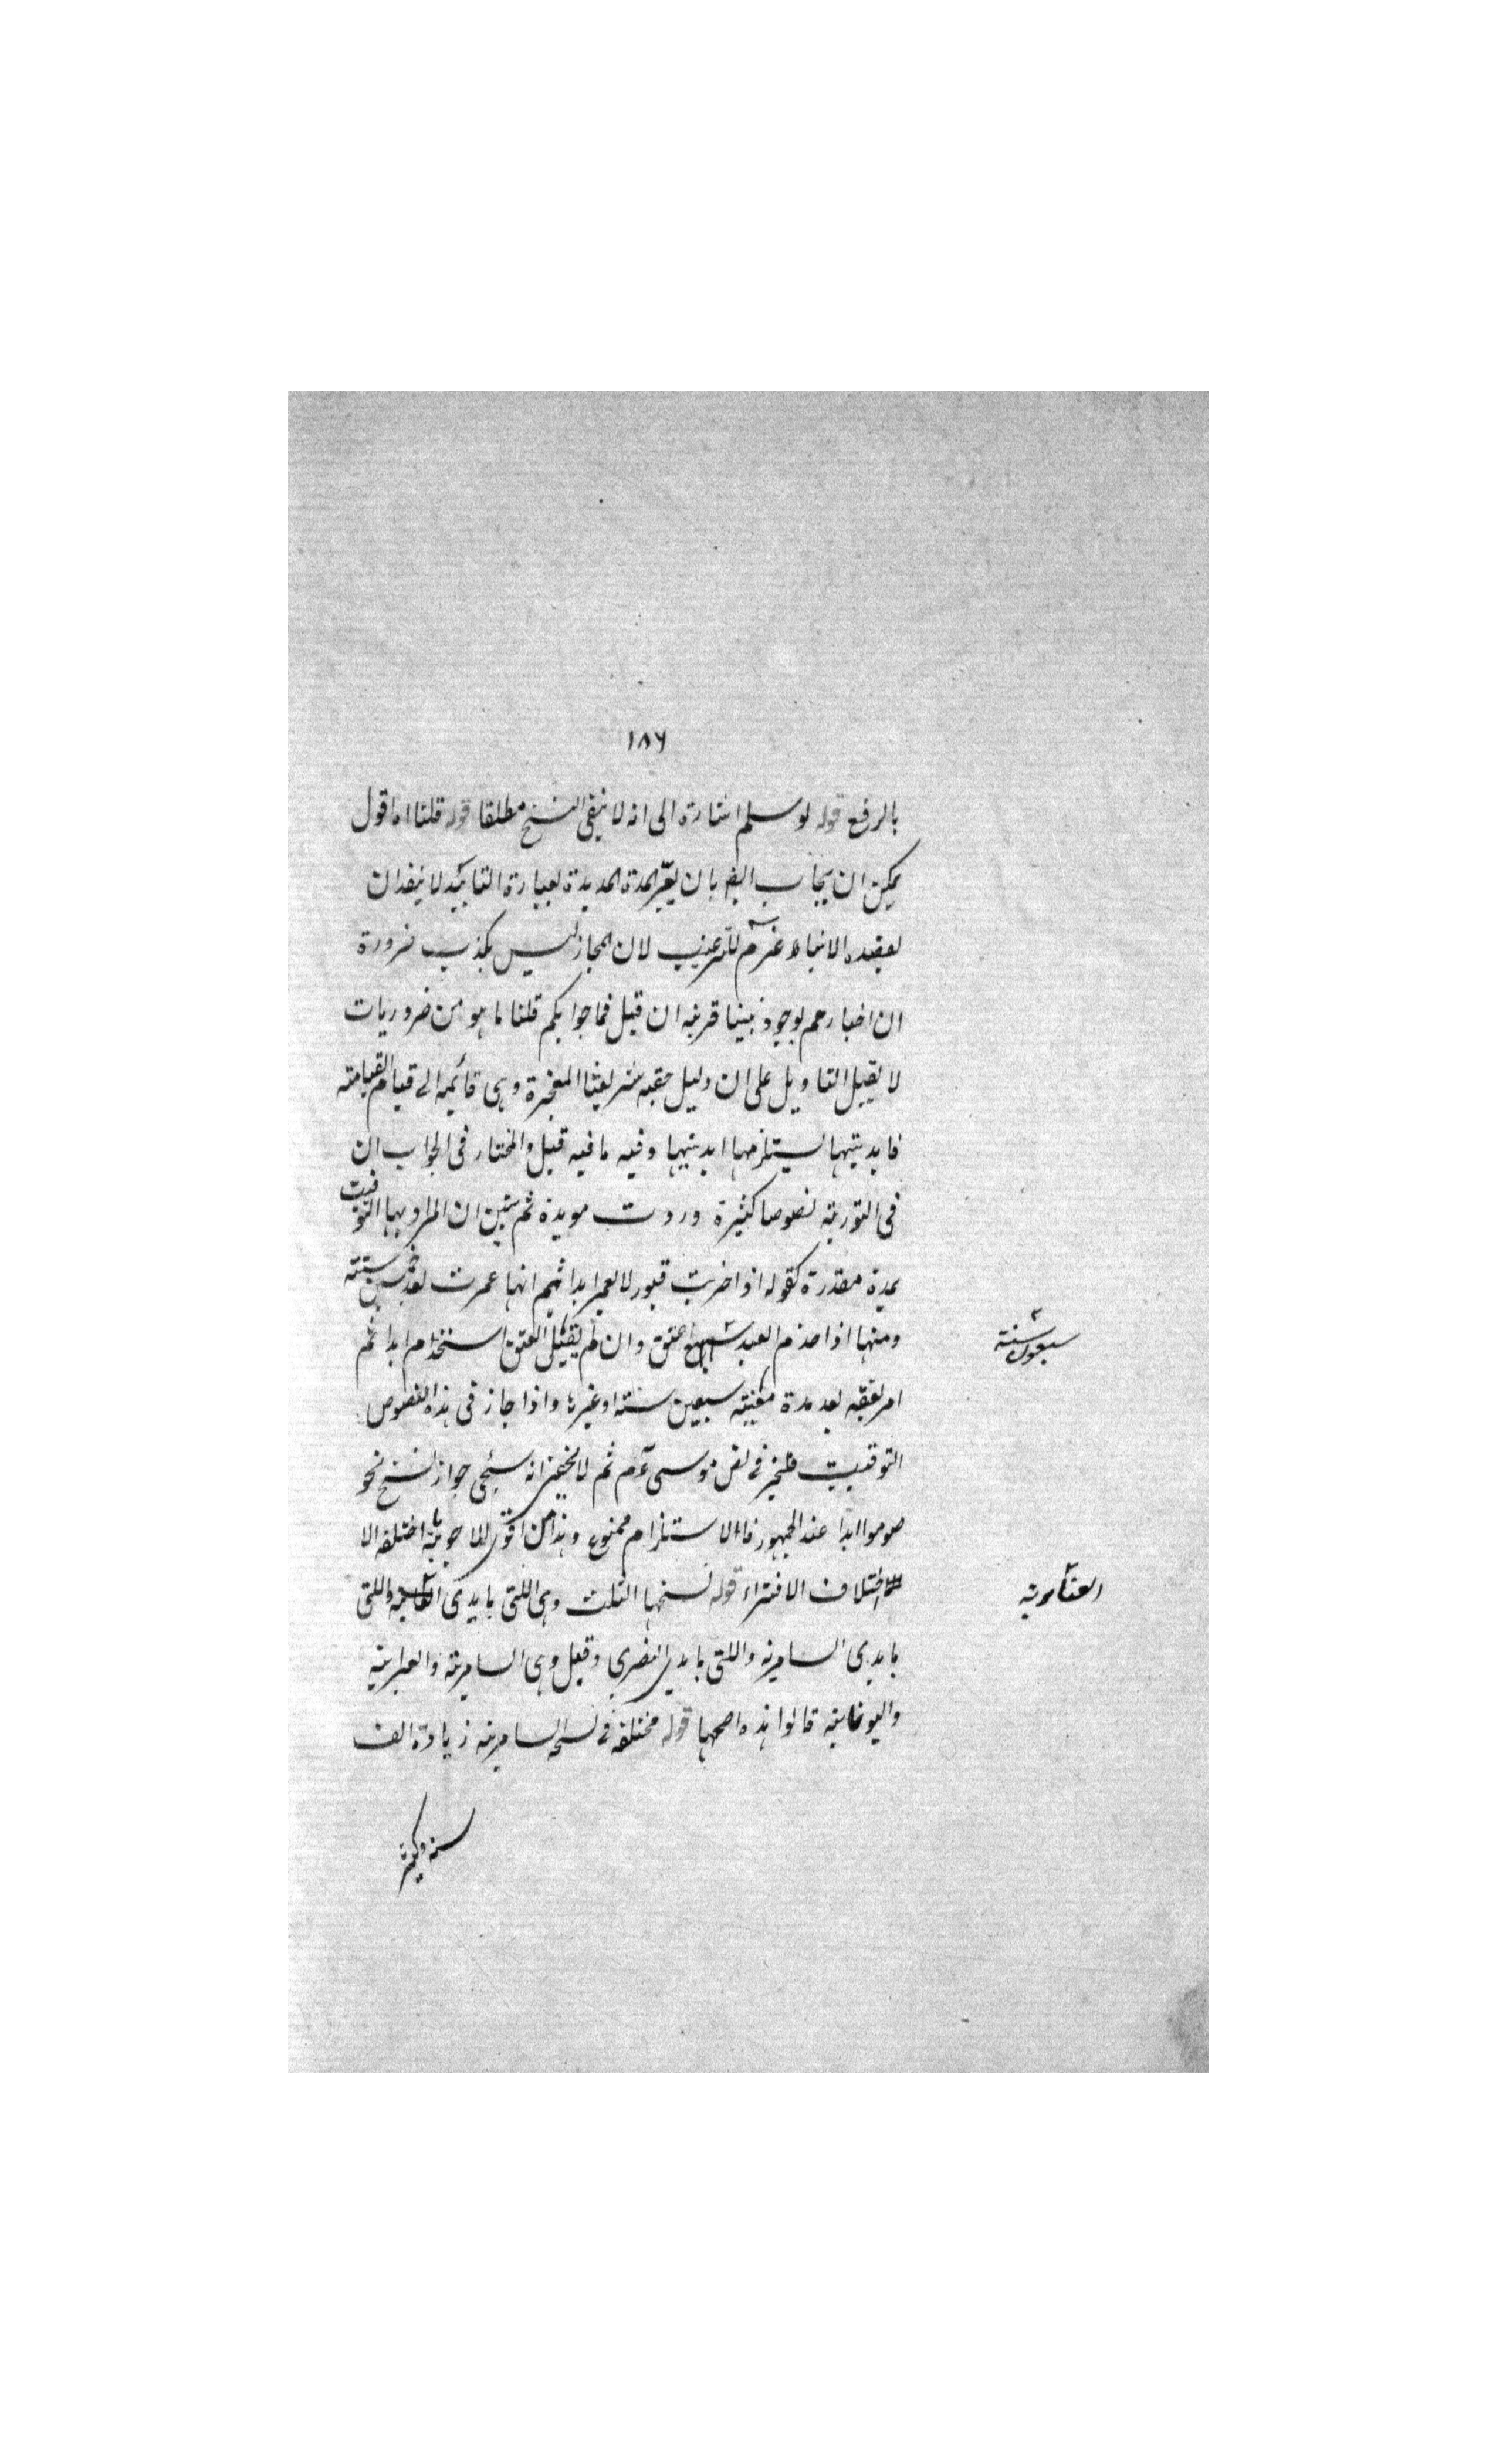 ١٨٦
بالرفع قوله لو سلم اشارة الى انه لا ينفى النسخ مطلقا قوله قلنا اه اقول
يمكن ان يجاب ايضا بان يعبر المدة المديدة بعبارة التابيد لا ينفد ان
الانبياء للترغيب لان المجاز ليس بكذب ضرورة
ان اخبارهم بوجود نبينا قرينه ان قيل فما جوابكم قلنا ما هو من ضروريات
لا يقبل التاويل على ان دليل حقيه شريعتنا المعجزة وهى قائمه الى قيام القيامته
فابديتها يستلزمها ابديتها وفيه ما فيه قيل والمختار فى الجواب ان
فى التورية نصوصا كثيرة وردت موبدة ثم تبين ان المراد بها التوقيت
بمدة مقدرة كقوله اذا خربت لا تعمر ابدا ثم انها عمرت بعد خمسين سنته
ومنها اذا خدم العبد سبع اعتق وان لم يقبل العتق استخدم ابدا ثم
سبعون سنته
امر بعتقه بعد مدة معينته سبعين سنته او غيرها واذا جاز فى هذه النصوص
التوقيت فى نص موسى ثم لا يخفى انه سيجى جواز نسخ نحو
صوموا ابدا عند الجمهور فالاستلزام ممنوع وهذا من اقوى الاجوبته اختلفه الا
اختلاف الافتراء قوله نسخها الثلث وهى اللتى بايدى واللتى
العنانيته
بايدى السامرية واللتى بايدى النصرى وقيل وهى السامريته والعبرانيه
واليونانيه قالوا هذه اصحها قوله مختلفه فى نسخه السامريه زيادة الف
سنه وكثير